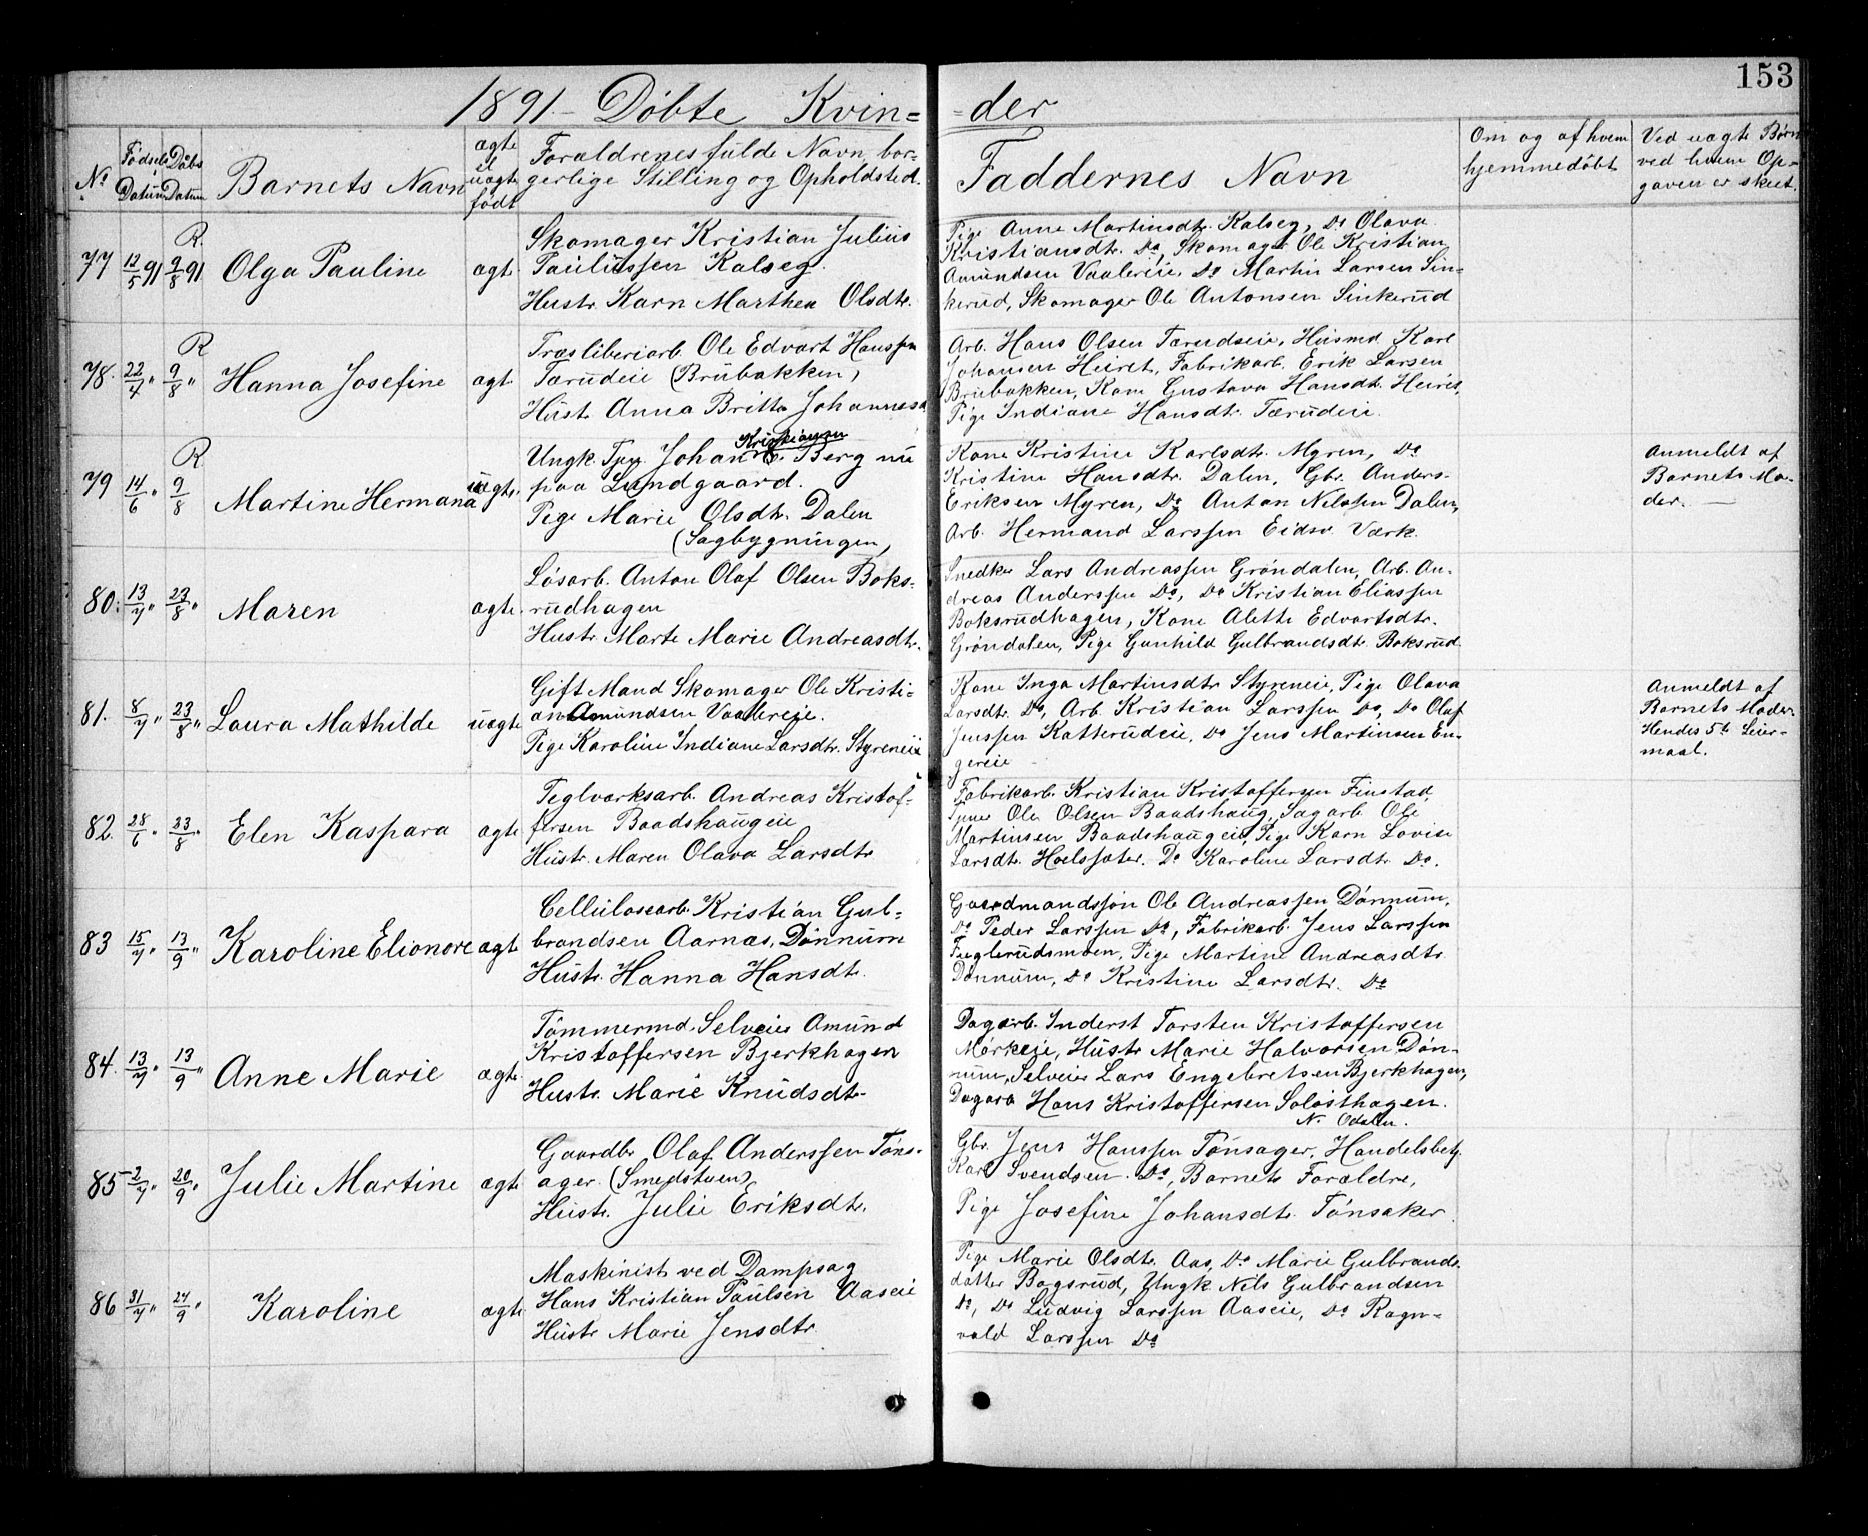 153
1891 - Döbte Kvin=
=der
No
Födsels Datum
Döbs Datum
Barnets Navn
ægte el uægte født
Forældrenes fulde Navn, bor-
gerlige Stilling og Opholdsted.
Faddernes Navn
Om og af hvem
hjemmedöbt
Ved uægte Børn
ved hvem Op-
gaven er skeet.
R.
77 12/5 91 9/8 91 Olga Pauline ægt.
Skomager Kristian Julius
Paulussen Kalseg.
Hustr. Karn Marthea Olsdtr.
Pige Anne Martinsdtr. Kalseg, Do Olava
Kristiansdtr. Do, Skomager Ole Kristian
Amundsen Vaalereie, Do Martin Larsen Sin=
kerud, Skomager Ole Antonsen Sinkerud
R
78. 22/4 " 9/8 " Hanna Josefine ægt.
Træsliberiarb. Ole Edvart Hanssen
Tærudeie (Brubakken)
Hustr. Anna Britta Johannesd.
Arb. Hans Olsen Tærudseie, Husmd Karl
Johansen Heiret, Fabrikarb. Erik Larsen
Brubakken, Kone Gustava Hansdtr. Heiret,
Pige Indiane Hansdtr. Tærudeie.
R
79 14/6 " 9/8 Martine Hermana uægte.
Kristiansen
Ungk. Johan C. Berg nu
paa Lundgaard.
Pige Marie Olsdtr. Dalen
(Sagbygningen)
Kone Kristine Karlsdtr. Myren, Do
Kristine Hansdtr. Dalen, Gbr. Anders
Eriksen Myren, Do Anton Nilssen Dalen,
Arb. Hermand Larssen Eidsv. Værk.
Anmeldt af
Barnets Mo-
der. —
80. 13/7 " 23/8 " Maren ægte.
Løsarb. Anton Olaf Olsen Boks-
rudhagen
Hustr. Marte Marie Andreasdtr.
Snedker Lars Andreassen Grøndalen, Arb. An-
dreas Anderssen Do, Do Kristian Eliassen
Boksrudhagen, Kone Alette Edvartsdtr.
Grøndalen, Pige Gunhild Gulbrandsdtr. Boksrud.
81. 8/7 " 23/8 " Laura Mathilde uægte
Gift Mand Skomager Ole Kristi=
an Amundsen Vaalereie.
Pige Karoline Indiane Larsdtr. Styreneie
Kone Inga Martinsdtr. Styreneie, Pige Olava
Larsdtr. Do, Arb. Kristian Larssen Do, Do Olaf
Jenssen Katterudeie, Do Jens Martinsen En-
gereie
Anmeldt af
Barnets Moder.
Hendes 5te Leier-
maal.
82. 28/6 " 23/8 " Elen Kaspara ægte
Teglværksarb. Andreas Kristof-
fersen Baadshaugeie
Hustr. Maren Olava Larsdtr.
Fabrikarb. Kristian Kristoffersen Finstad,
Ole Olsen Baadshaug, Sagarb. Ole
Martinsen Baadshaugeie, Pige Karn Lovise
Larsdtr. Hoelsæter. Do Karoline Larsdtr. Do.
83 15/7 " 13/9 " Karoline Elionore ægt
Cellulosearb. Kristian Gul-
brandsen Aarnæs, Dønnum
Hustr. Hanna Hansdtr.
Gaardmandssøn Ole Andreassen Dønnum,
Do Peder Larssen Do, Fabrikarb. Jens Larssen
Fuglerudsmoen, Pige Martine Andreasdtr.
Dønnum, Do Kristine Larsdtr. Do
84. 13/7 " 13/9 " Anne Marie ægte.
Tømmermd. Selveier Amund
Kristoffersen Bjerkhagen
Hustr. Marie Knudsdtr.
Dagarb. Inderst Torsten Kristoffersen
Mørkeie, Hustr. Marie Halvorsen Døn-
num, Selveier Lars Engebretsen Bjerkhagen,
Dagarb Hans Kristoffersen Solösthagen.
N. Odalen.
85 2/7 " 20/9 " Julie Martine ægte
Gaardbr. Olaf Anderssen Tøns-
ager. (Smedstuen)
Hustr. Julie Eriksdtr.
Gbr. Jens Hanssen Tønsager, Handelsbetj.
Karl Svendsen. Do, Barnets Forældre,
Pige Josefine Johansdtr. Tønsaker.
86 31/7 " 27/9 " Karoline ægte
Maskinist ved Dampsag
Hans Kristian Paulsen Aaseie
Hustr. Marie Jensdtr.
Pige Marie Olsdtr. Aas, Do Marie Gulbrands-
datter Bagsrud, Ungk. Nils Gulbrandsen
Do, Do Ludvig Larssen Aaseie, Do Ragn-
vald Larssen Do